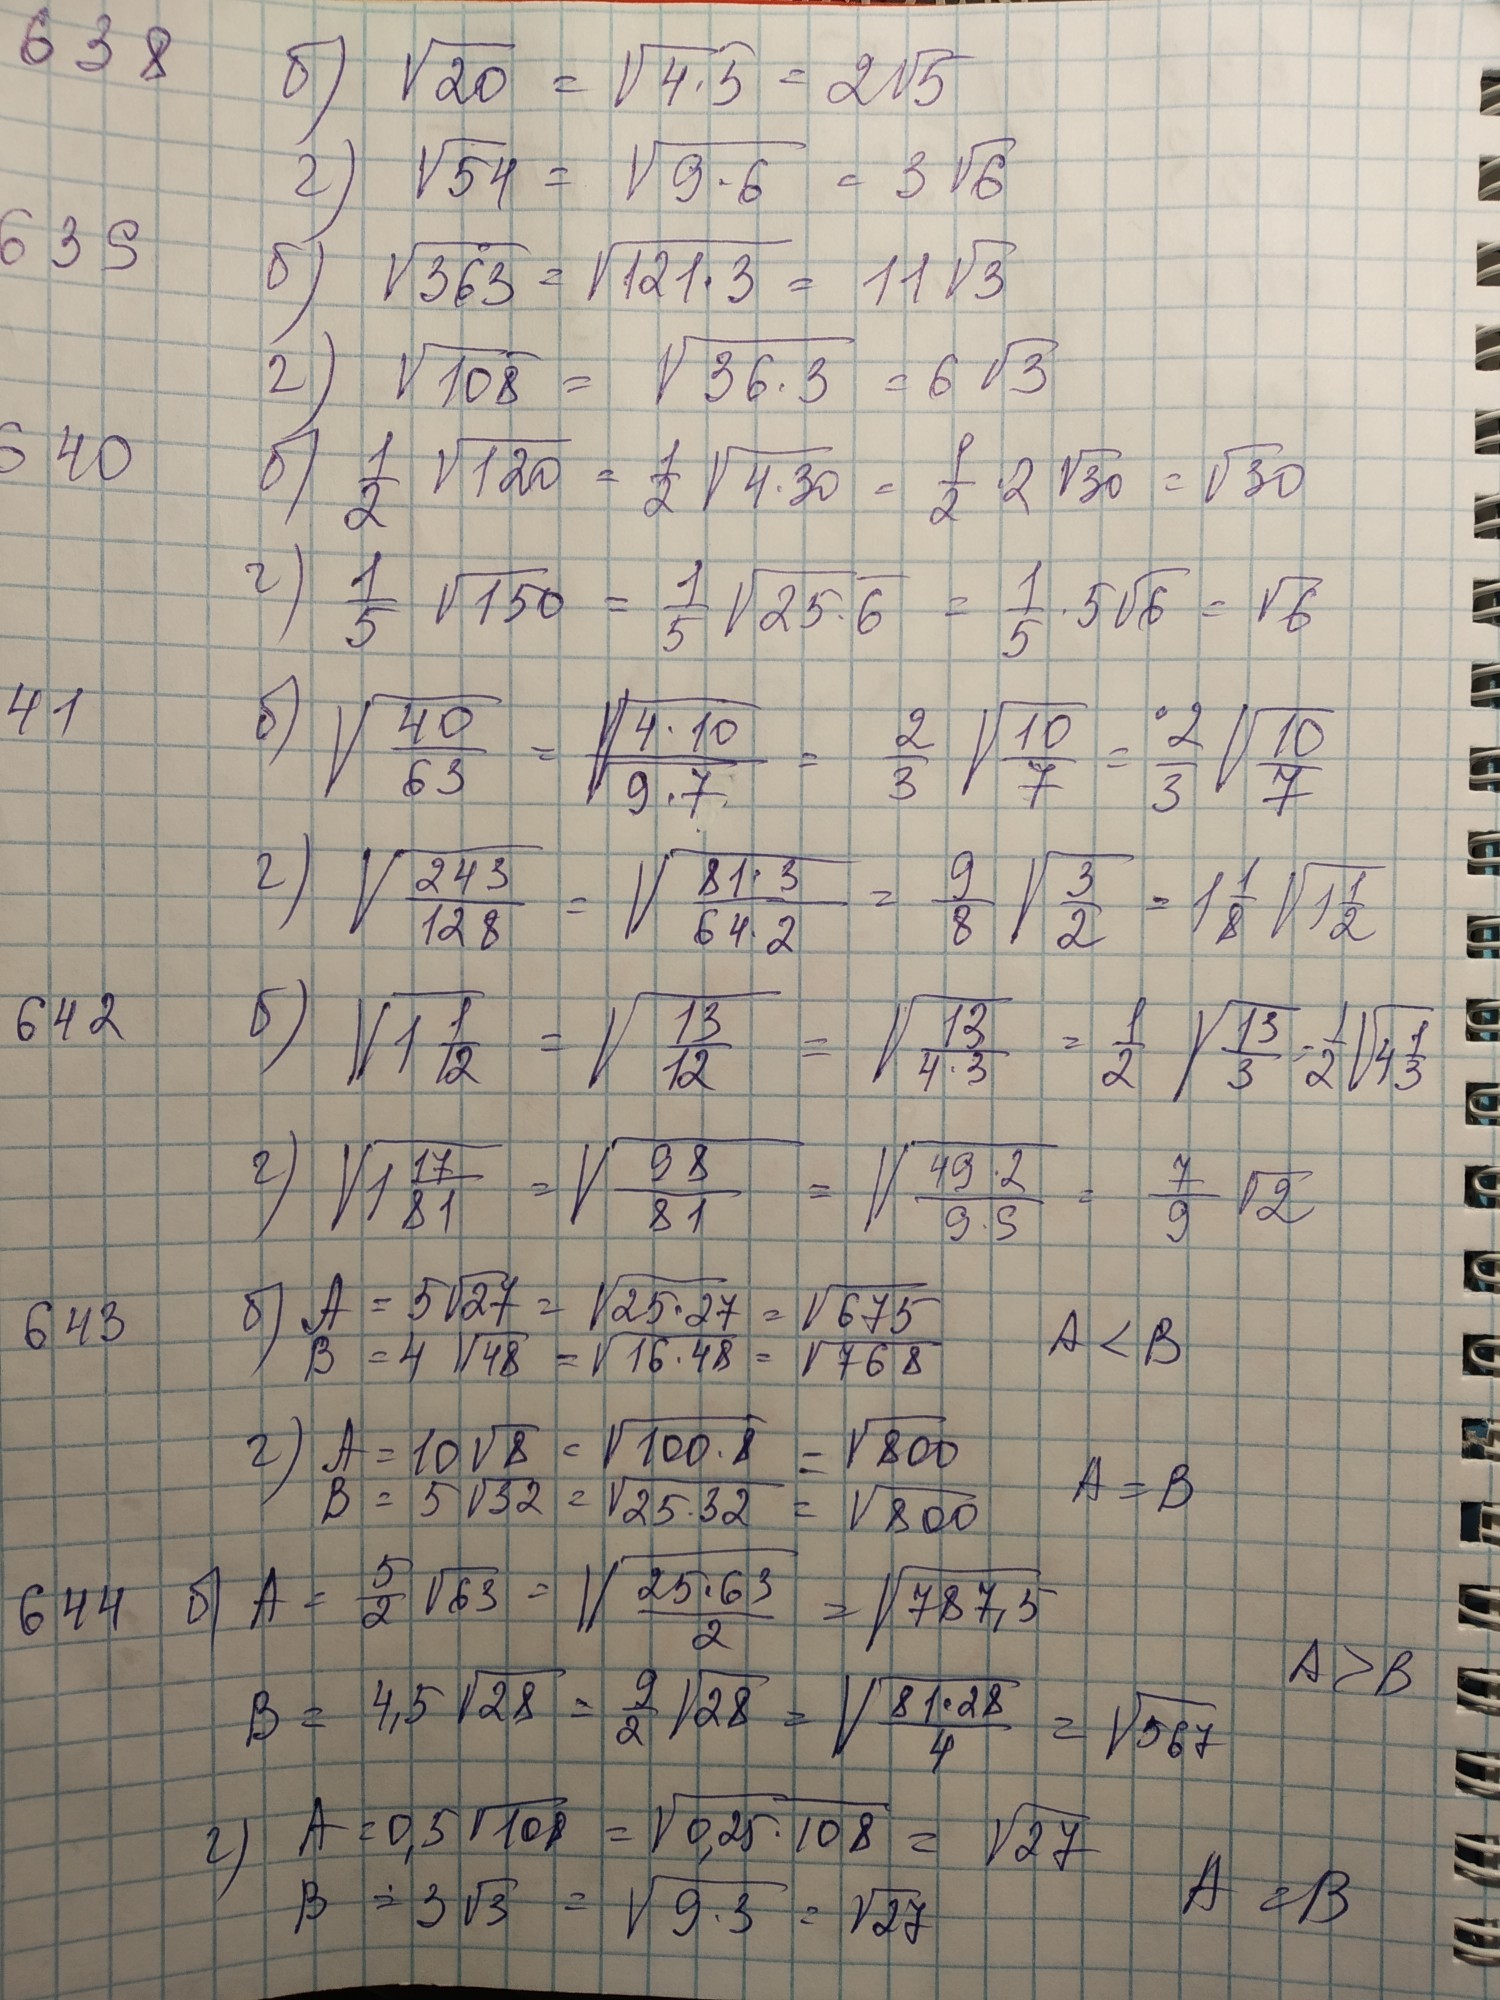 638 б) √20 = √4·5 = 2√5
г) √54 = √9·6 = 3√6
639 б) √363 = √121·3 = 11√3
г) √108 = √36·3 = 6√3
640 б) 1/2 √120 = 1/2 √4·30 = 1/2 ·2 √30 = √30
г) 1/5 √150 = 1/5 √25·6 = 1/5 ·5√6 = √6
41 б) √40/63 = √4·10/9·7 = 2/3 √10/7 = 2/3 √10/7
г) √243/128 = √81·3/64·2 = 9/8 √3/2 = 1 1/8 √1 1/2
642 б) √1 1/12 = √13/12 = √13/4·3 = 1/2 √13/3 = 1/2 √4 1/3
г) √1 17/81 = √98/81 = √49·2/9·9 = 7/9 √2
643 б) A = 5√27 = √25·27 = √675
B = 4√48 = √16·48 = √768 A < B
г) A = 10√8 = √100·8 = √800
B = 5√32 = √25·32 = √800 A = B
644 б) A = 5/2 √63 = √25·63/2 = √787,5
A > B
B = 4,5√28 = 9/2 √28 = √81·28/4 = √567
г) A = 0,5√108 = √0,25·108 = √27
B = 3√3 = √9·3 = √27 A = B